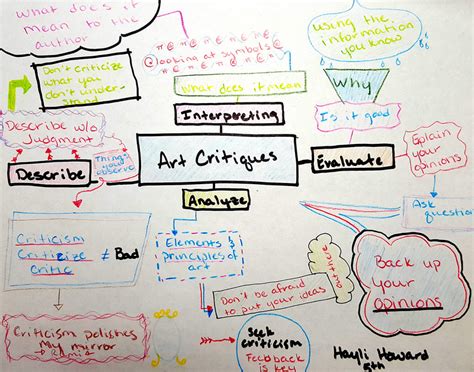 What does it
mean to the
author
using the
information
you know
Don't criticize
what you
don't under-
stand
looking at symbols
What does it mean
Why
Interpreting
Is it good
Describe w/o
Judgment
Things
you
observe
Art Critiques
Evaluate
Explain
your
opinions
Describe
Analyze
Ask
question
Criticism
Criticize
Critic
≠ Bad
Elements &
principles of
art
Back up
your
Opinions
Don't be afraid
to put your ideas
Criticism polishes
My mirror
seek
criticism
Feedback
is key
Hayli Howard
5th